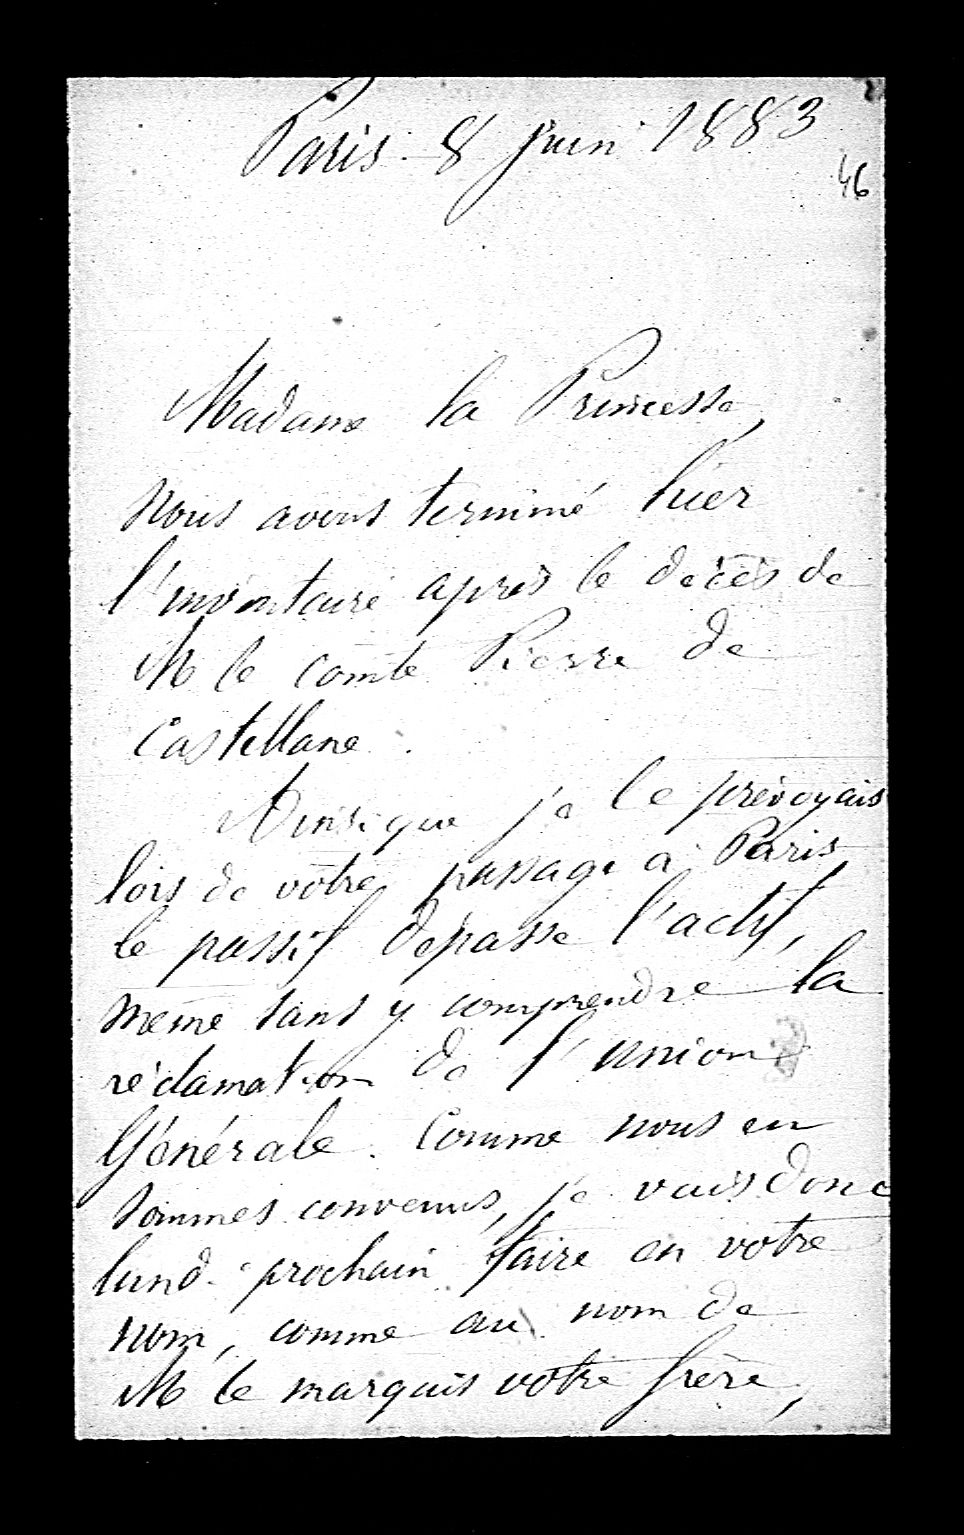 Paris 8 juin 1883
46
Madame la Princesse,
Nous avons terminé hier
l'inventaire après le décès de
M le comte Pierre de
Castellane.
Ainsi que je le prévoyais
lors de votre passage à Paris
le passif dépasse l'actif,
même sans y comprendre la
réclamation de l'Union
Générale. Comme nous en
sommes convenus, je vais donc
lundi prochain faire en votre
nom, comme au nom de
M le marquis votre frère,